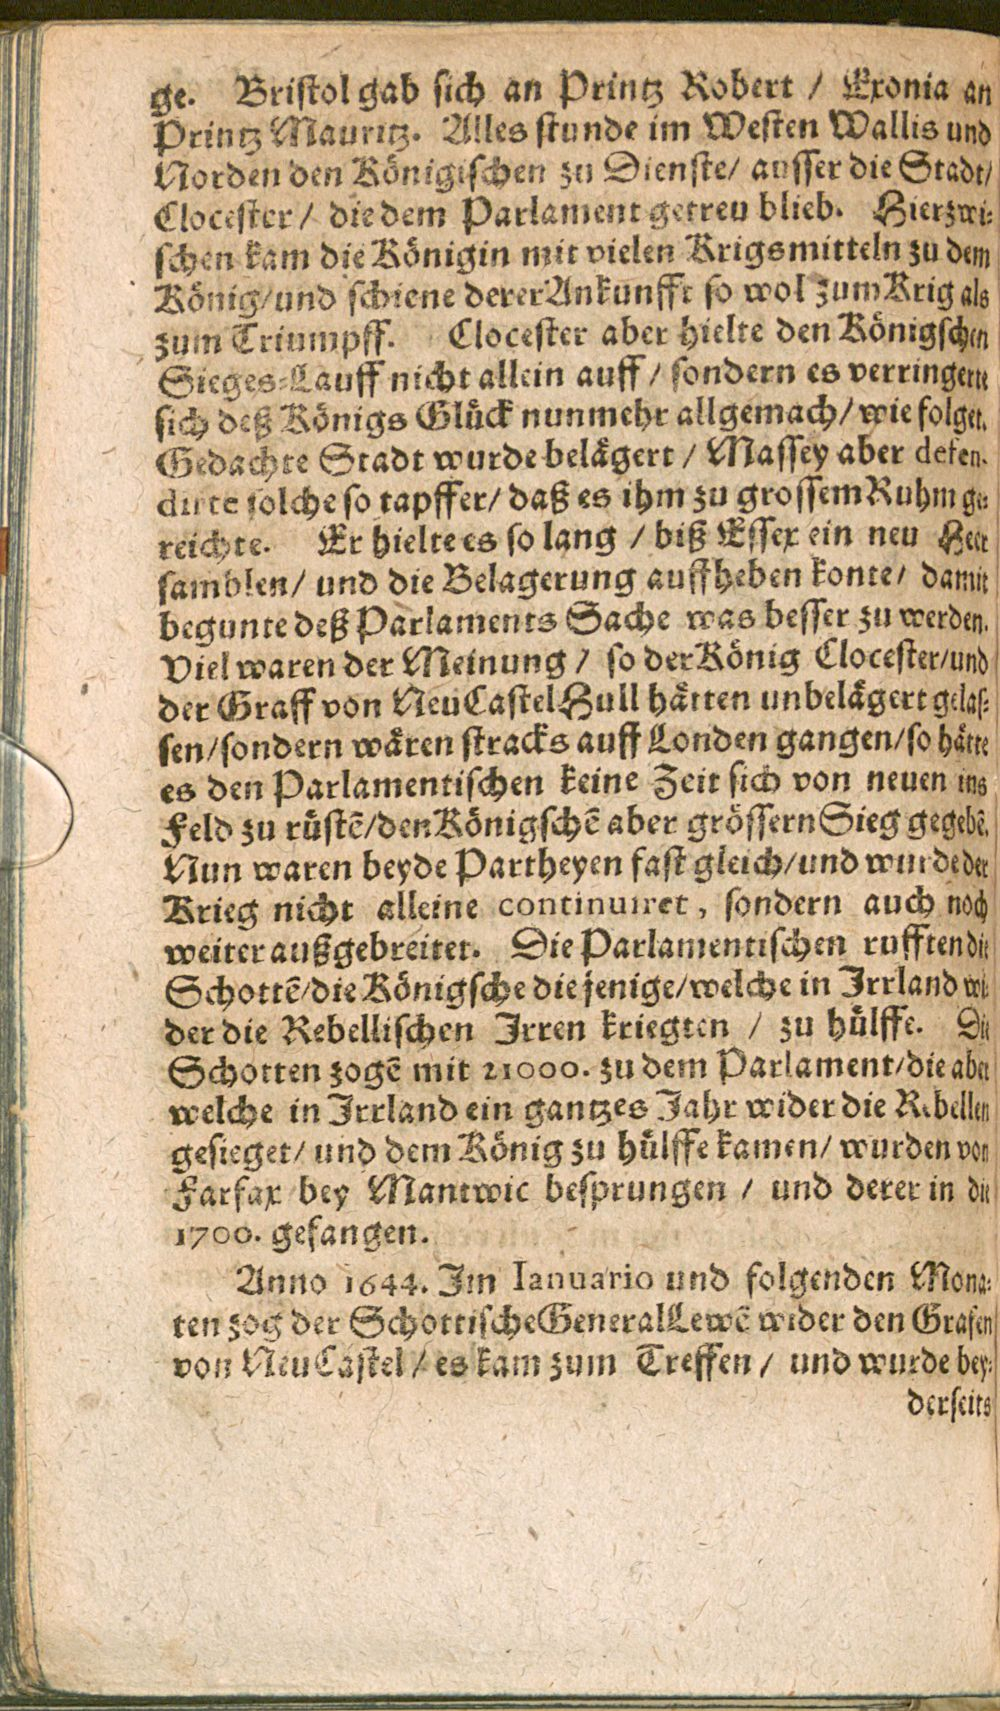 ge. Bristol gab sich an Printz Robert / Exonia an
Printz Mauritz. Alles stunde im Westen Wallis und
Norden den Königischen zu Dienste/ ausser die Stadt/
Clocester / die dem Parlament getreu blieb. Hierzwi-
schen kam die Königin mit vielen Krigsmitteln zu dem
König/und schiene derer Ankunfft so wol zum Krig als
zum Triumpff. Clocester aber hielte den Königschen
Sieges-Lauff nicht allein auff / sondern es verringerte
sich deß Königs Glück nunmehr allgemach/ wie folget.
Gedachte Stadt wurde belägert / Massey aber defen-
dirte solche so tapffer/ daß es ihm zu grossem Ruhm ge-
reichte. Er hielte es so lang / biß Essex ein neu Heer
samblen/ und die Belagerung auffheben konte/ damit
begunte deß Parlaments Sache was besser zu werden.
Viel waren der Meinung / so der König Clocester/und
der Graff von NeuCastel Hull hätten unbelägert gelas-
sen/sondern wären stracks auff Londen gangen/so hätte
es den Parlamentischen keine Zeit sich von neuen ins
Feld zu rüstē/den Königschē aber grössern Sieg gegebē.
Nun waren beyde Partheyen fast gleich/und wurde der
Krieg nicht alleine continuiret, sondern auch noch
weiter außgebreitet. Die Parlamentischen rufften die
Schottē/die Königsche diejenige/welche in Irrland wi-
der die Rebellischen Irren kriegten / zu hülffe. Die
Schotten zogē mit 21000. zu dem Parlament/die aber
welche in Irrland ein gantzes Jahr wider die Rebellen
gesieget/ und dem König zu hülffe kamen/ wurden von
Farfax bey Mantwic besprungen / und derer in die
1700. gefangen.
Anno 1644. Im Ianuario und folgenden Mona-
ten zog der Schottische General Lewē wider den Grafen
von NeuCastel / es kam zum Treffen / und wurde bey-
derseits